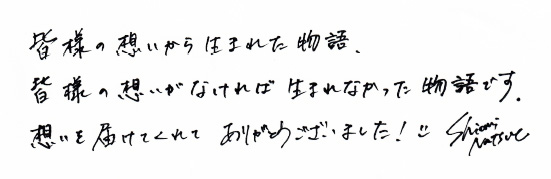 皆様の想いから生まれた物語、
皆様の想いがなければ生まれなかった物語です。
想いを届けてくれて ありがとうございました! Shiomi
Natsue